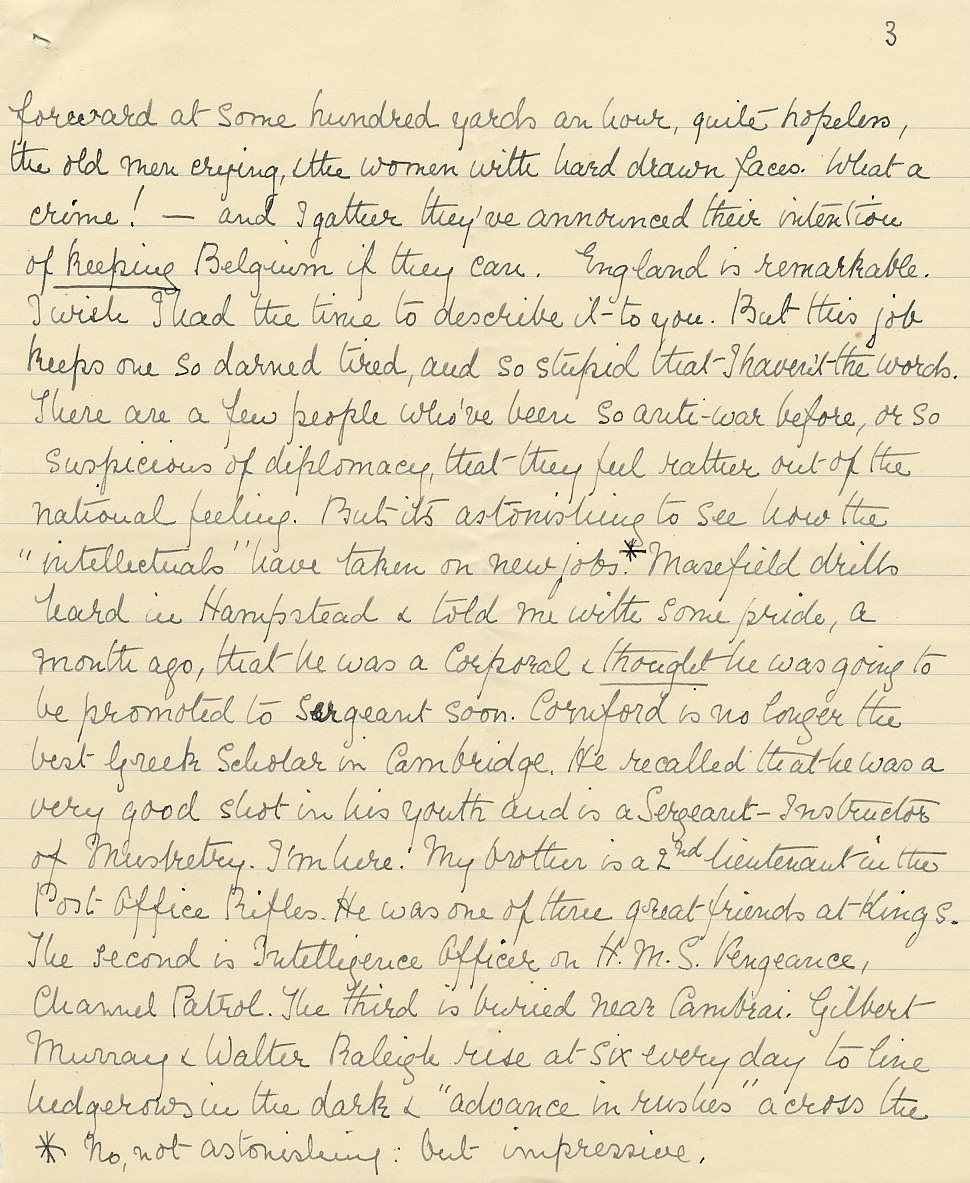 3
forward at some hundred yards an hour, quite hopeless,
the old men crying, & the women with hard drawn faces. What a
crime! — and I gather they've announced their intention
of keeping Belgium if they can. England is remarkable.
I wish I had the time to describe it to you. But this job
keeps one so darned tired, and so stupid that I haven't the words.
There are a few people who've been so anti-war before, or so
suspicious of diplomacy, that they feel rather out of the
national feeling. But it's astonishing to see how the
"intellectuals" have taken on new jobs.* Masefield drills
hard in Hampstead & told me with some pride, a
month ago, that he was a Corporal & thought he was going to
be promoted to Sergeant soon. Cornford is no longer the
best Greek Scholar in Cambridge. He recalled that he was a
very good shot in his youth and is a Sergeant-Instructor
of Musketry. I'm here. My brother is a 2nd lieutenant in the
Post Office Rifles. He was one of three great friends at Kings.
The second is Intelligence Officer on H.M.S. Vengeance,
Channel Patrol. The third is buried near Cambrai. Gilbert
Murray & Walter Raleigh rise at six every day to line
hedgerows in the dark & "advance in rushes" across the
* No, not astonishing: but impressive.